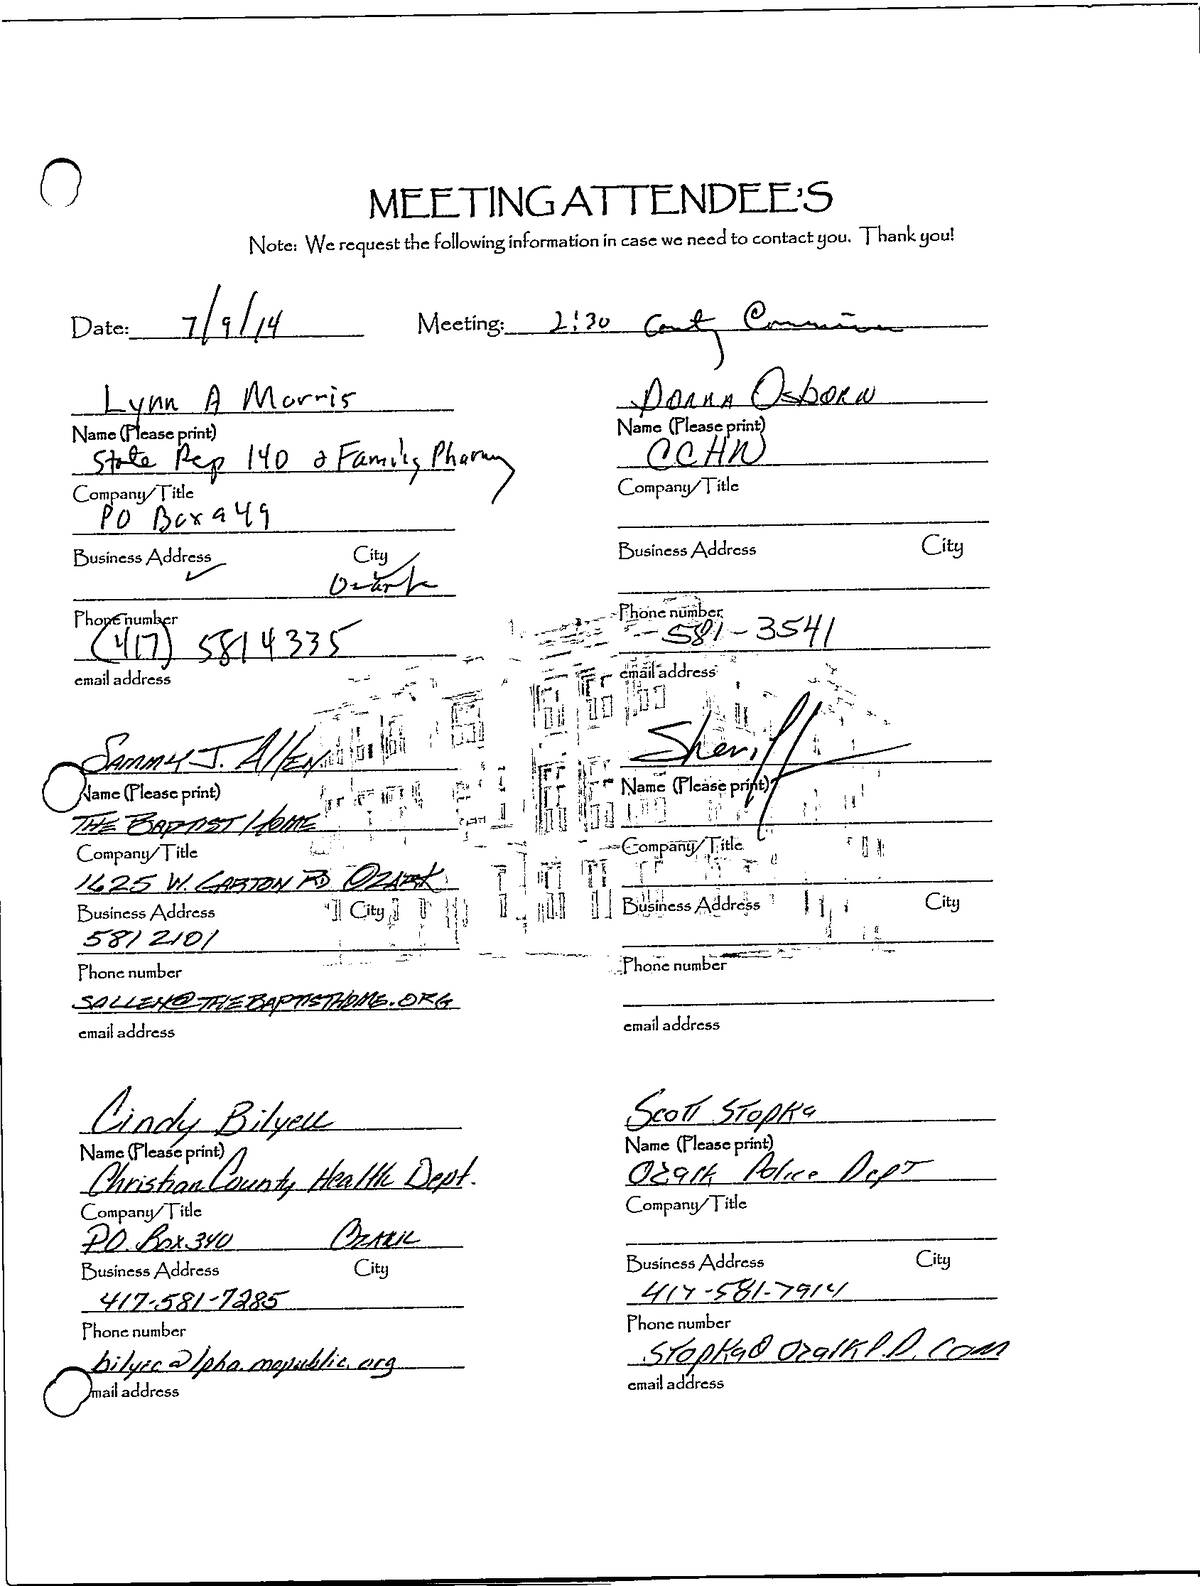 MEETING ATTENDEE'S
Note: We request the following information in case we need to contact you. Thank you!
Date: 7/9/14 Meeting: 2:30 County Commission
Lynn A Morris
Name (Please print)
State Rep 140 & Family Pharmacy
Company/Title
PO Box 949
Business Address City
Ozark
Phone number
(417) 581 4335
email address
Donna Osborn
Name (Please print)
CCHN
Company/Title
Business Address City
Phone number
581-3541
email address
Sammy J. Allen
Name (Please print)
THE BAPTIST HOME
Company/Title
1625 W. GARTON RD OZARK
Business Address City
581 2101
Phone number
SALLEN@THEBAPTISTHOME.ORG
email address
Sheriff
Name (Please print)
Company/Title
Business Address City
Phone number
email address
Cindy Bilyeu
Name (Please print)
Christian County Health Dept.
Company/Title
P.O. Box 340 Ozark
Business Address City
417-581-7285
Phone number
bilyec@lpha.mopublic.org
mail address
Scott Stopka
Name (Please print)
Ozark Police Dept
Company/Title
Business Address City
417-581-7914
Phone number
Stopka@OzarkP.D.com
email address